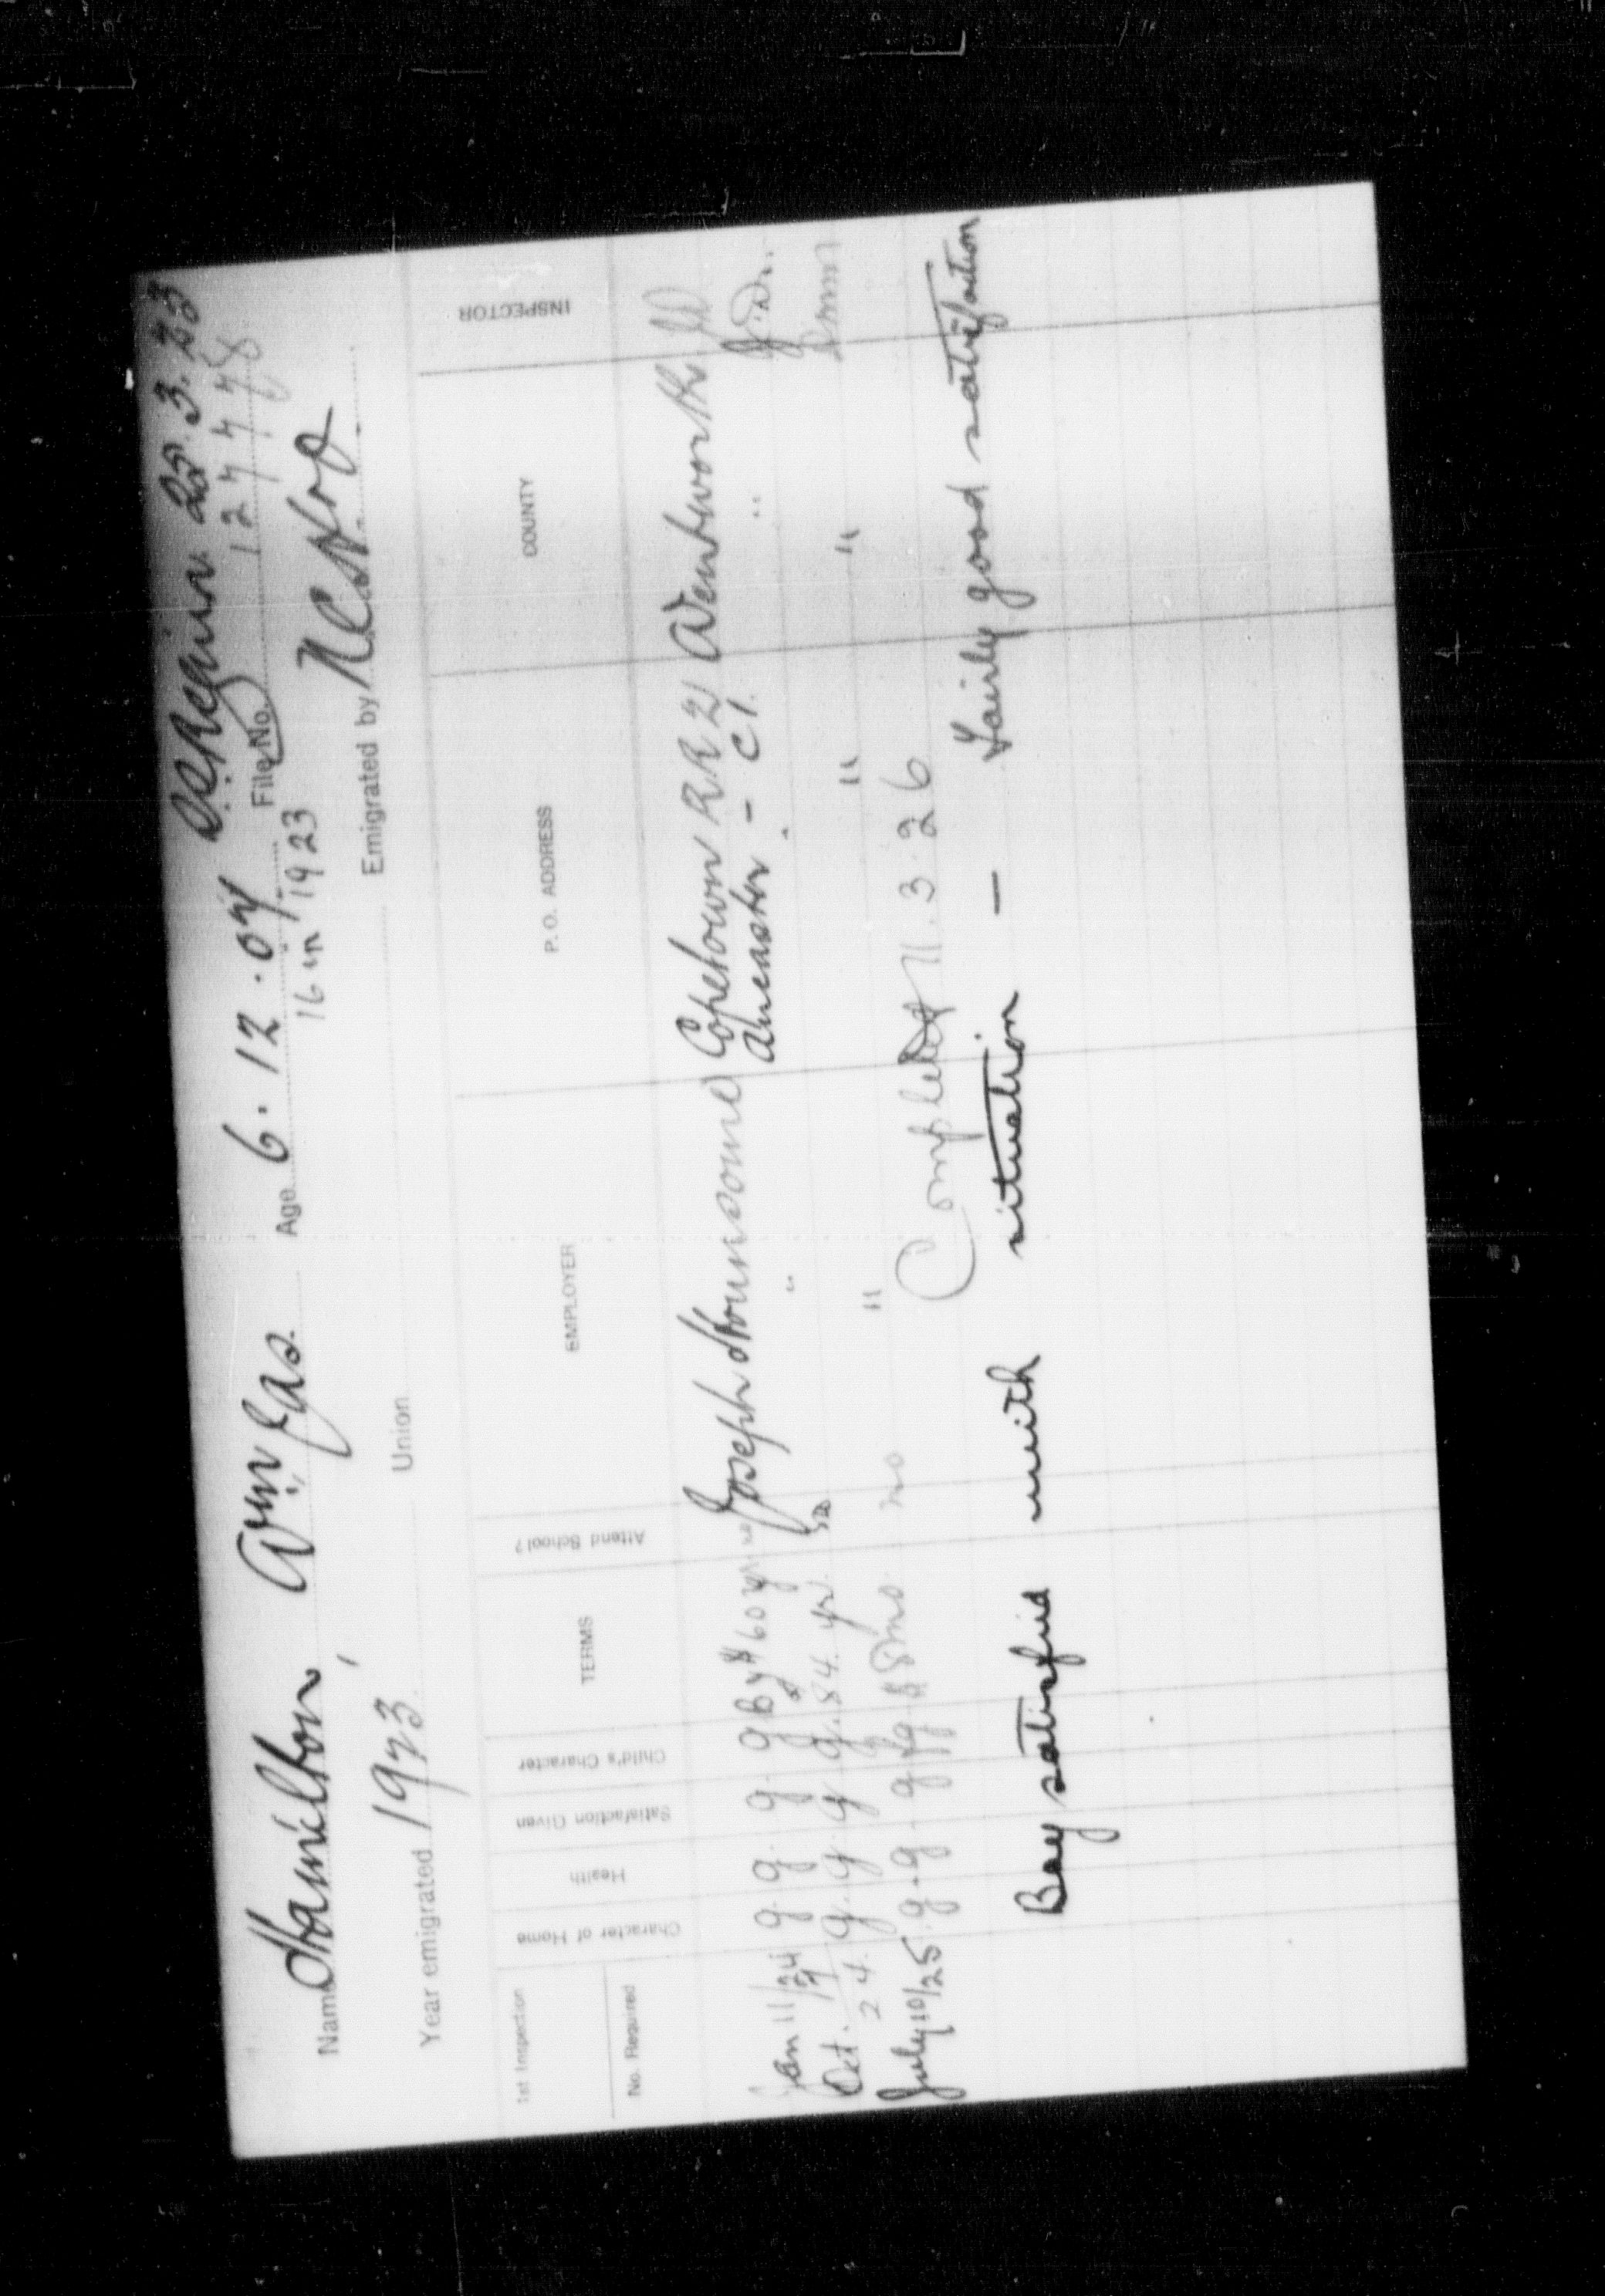 Name Hamilton, Wm Jas. Age 6.12.07 SS Regina 23.3.23
File No. 12778
16 in 1923
Year emigrated 1923 Union Emigrated by N.C.H.
1st Inspection Character of Home Health Satisfaction Given Child's Character TERMS Attend School? EMPLOYER P. O. ADDRESS COUNTY INSPECTOR
No. Required
Jan 11/24 g. g. g. g $60 yr no Joseph Hounsome Copetown RR 2 Wentworth
Oct. 24. g. g. g g. 84. yr. " Ancaster - C 1. "
July 10/25 g. g. g fg $8 mo. no " " "
Completed 11.3.26
Boy satisfied with situation — Fairly good satisfaction